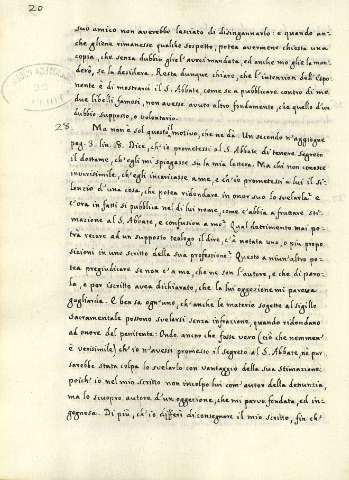 20
suo amico non averebbe lasciato di disingannarlo: e quando an-
che gliene rimanesse qualche sospetto, potea avermene chiesta una
copia, che senza dubbio gliel'averei mandata, ed anche mo' gliela man-
derò, se la desidera. Resta dunque chiaro, che l'intenzion dell'Espo-
nente è di mostrarsi il S. Abbate, come se a pubblicare contro di me
due libelli famosi, non avesse avuto altro fondamento, che quello d'un
dubbio supposto, o volontario.
28 Ma non è sol questo il motivo, che ne dà. Un secondo n'aggiugne
pag. 3. lin. 18. Dice, ch'io promettessi al S. Abbate di tenere segreto
il dottame, ch'egli mi spiegasse su la mia lettera. Ma chi non conosce
inverisimile, ch'egli incaricasse a me, e ch'io promettessi a lui il si-
lenzio d'una cosa, che potea ridondare in onor suo lo svelarla? e
c'ora in fatti si pubblica nel di lui nome, come c'abbia a fruttare sti-
mazione al S. Abbate, e confusione a me? Qual detrimento mai po-
trà recare ad un supposto teologo il dire, c'à notata uno, o più propo-
sizioni in uno scritto della sua professione? Questo a niun'altro po-
tea pregiudicare se non c'a me, che ne son l'autore, e che di paro-
la, e per iscritto avea dichiarato, che la lui oggezione mi pareva
gagliarda. E ben sa ogn'uno, ch'anche le materie sogette al sigillo
Sacramentale possono svelarsi senza infrazione, quando ridondano
ad onore del penitente: Onde ancro che fosse vero (ciò che nemmen'
è verisimile) ch'io n'avessi promesso il segreto al S. Abbate, ne pur
sarebbe stata colpa lo svelarlo con vantaggio della sua stimazione:
poich'io nel mio scritto non incolpo lui com'autor della denunzia,
ma lo scuopro autore d'un oggezione, che mi parve fondata, ed in-
gegnosa. Di più, ch'io differi di consegnare il mio scritto, fin ch'